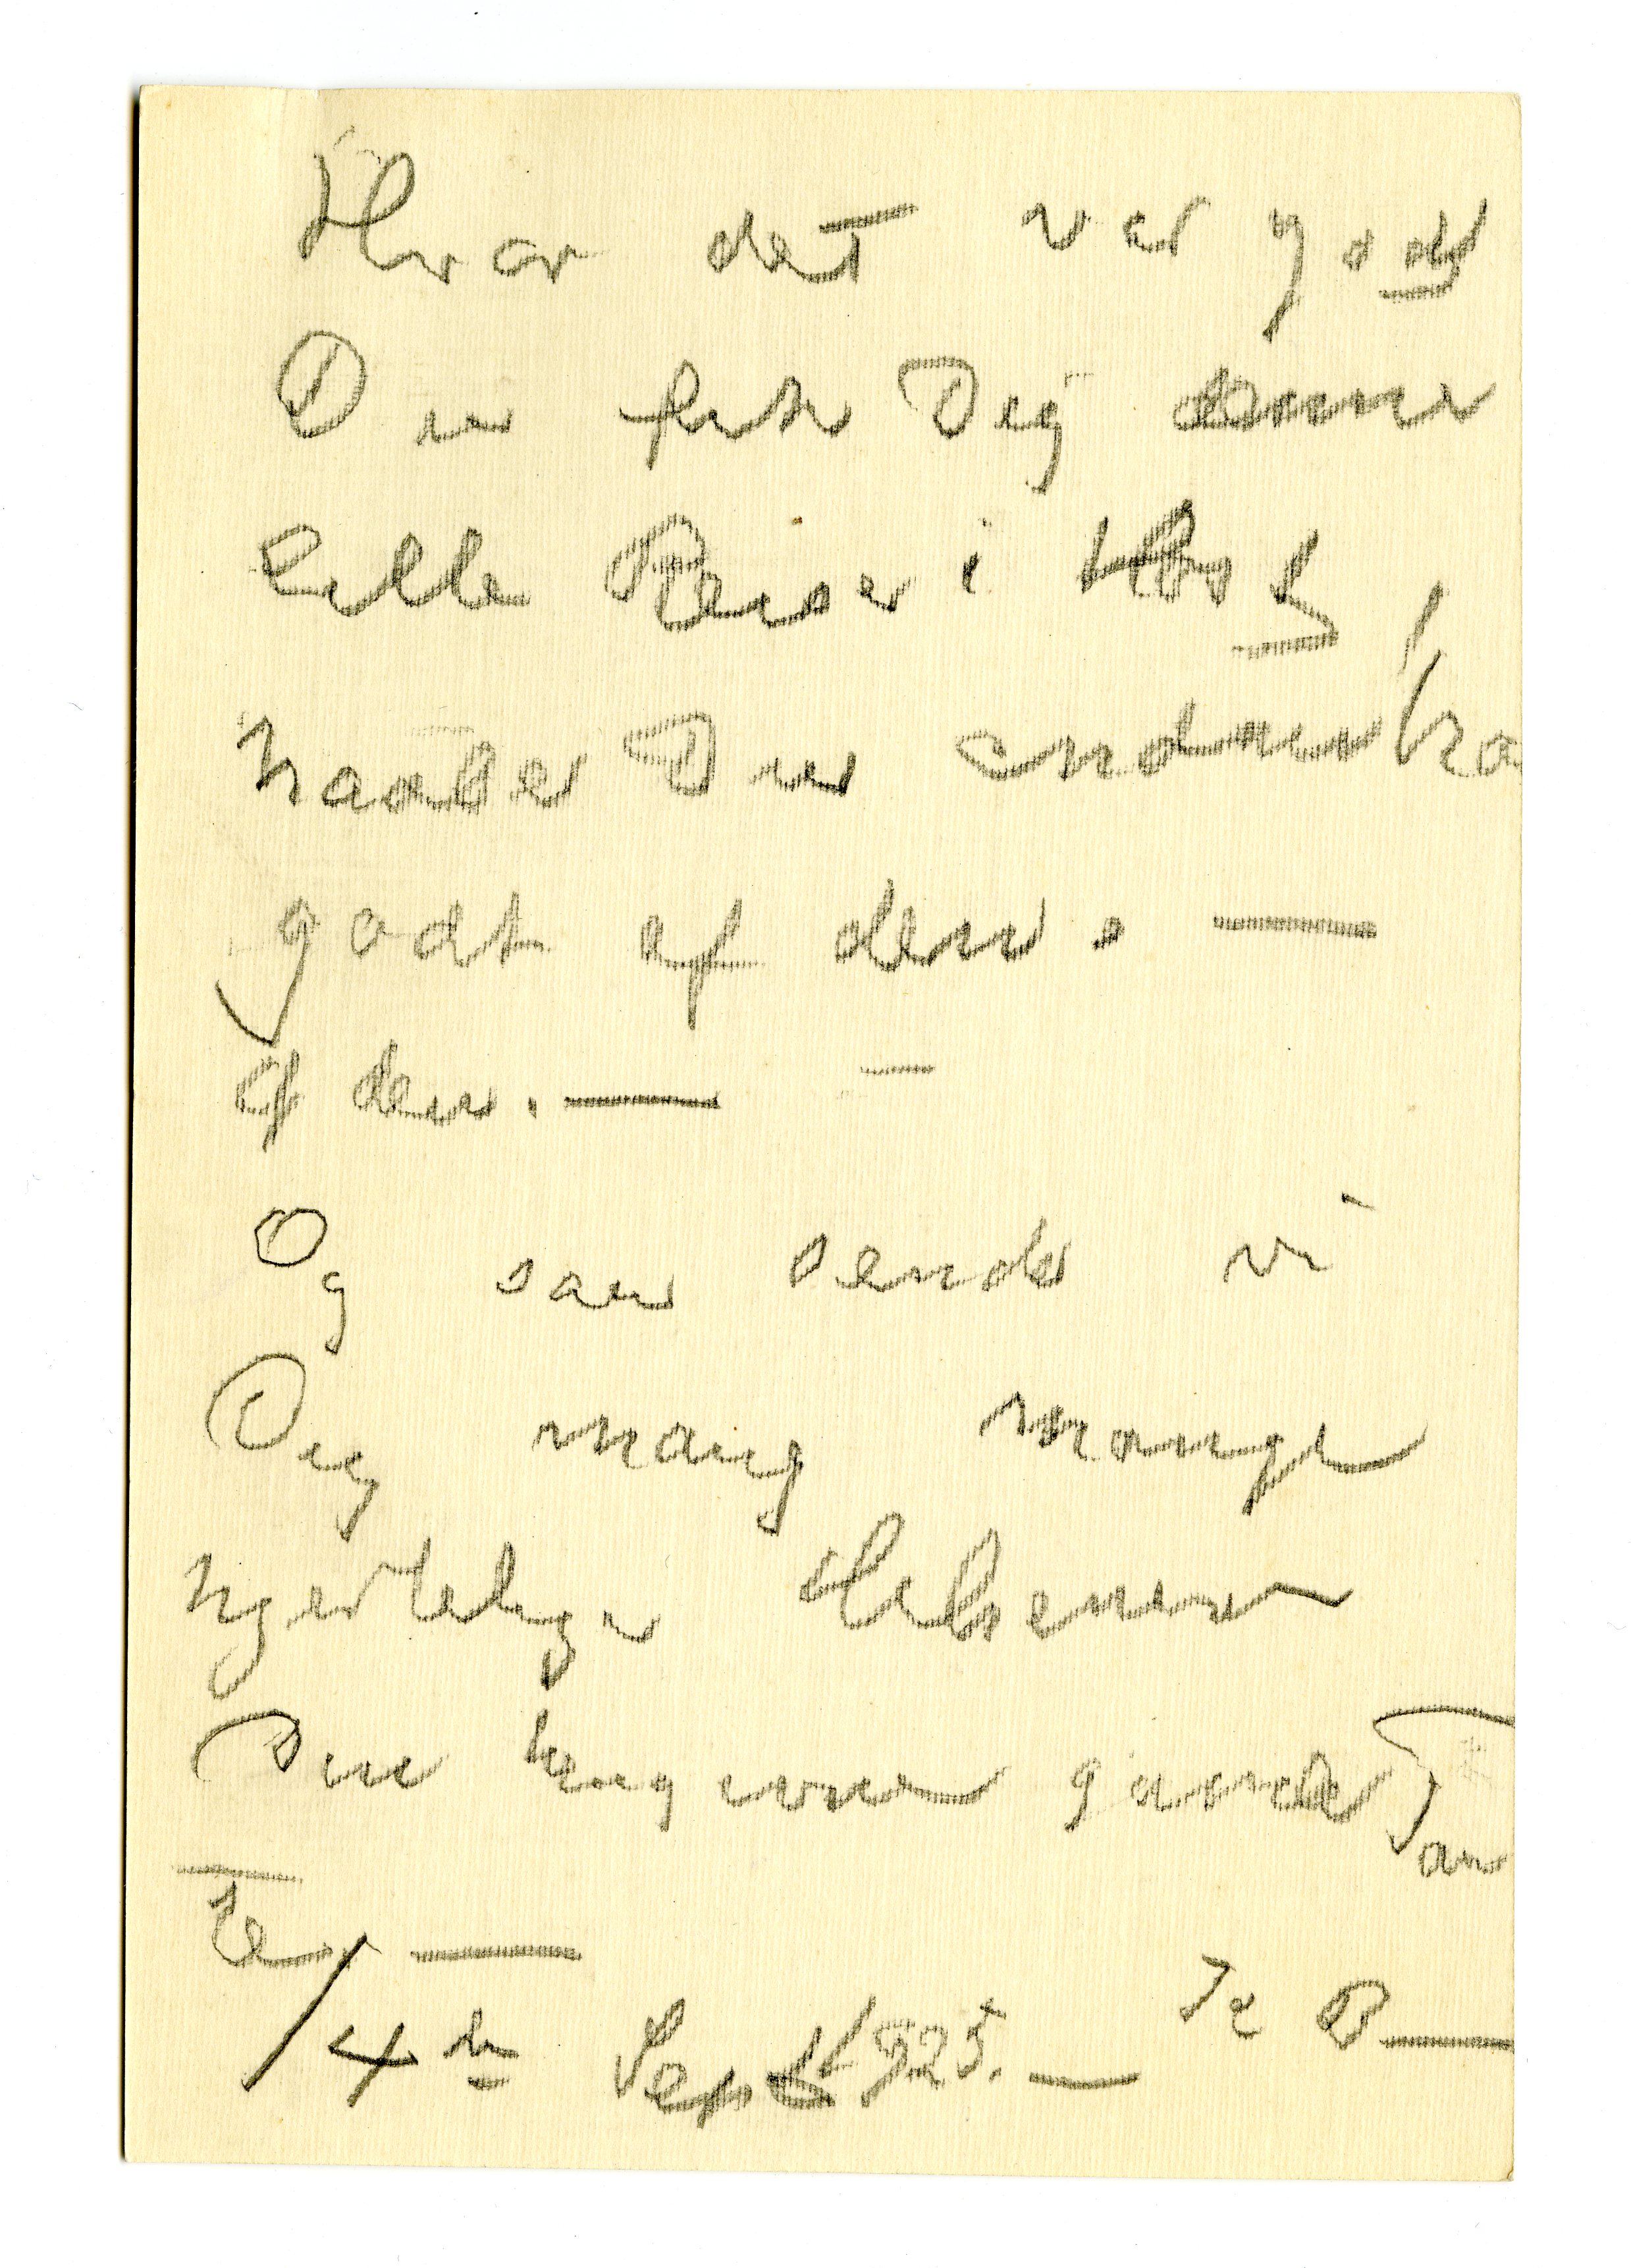 Hvor det var godt
Du fik Dig denne
lille Reise i
haaber Du endnu har
godt af den. —
af den. —
Og saa sender vi
Dig mange
hjertelige Hilsener
Din hengivne gamle Tan
te —
14de Sept 1925. — B —